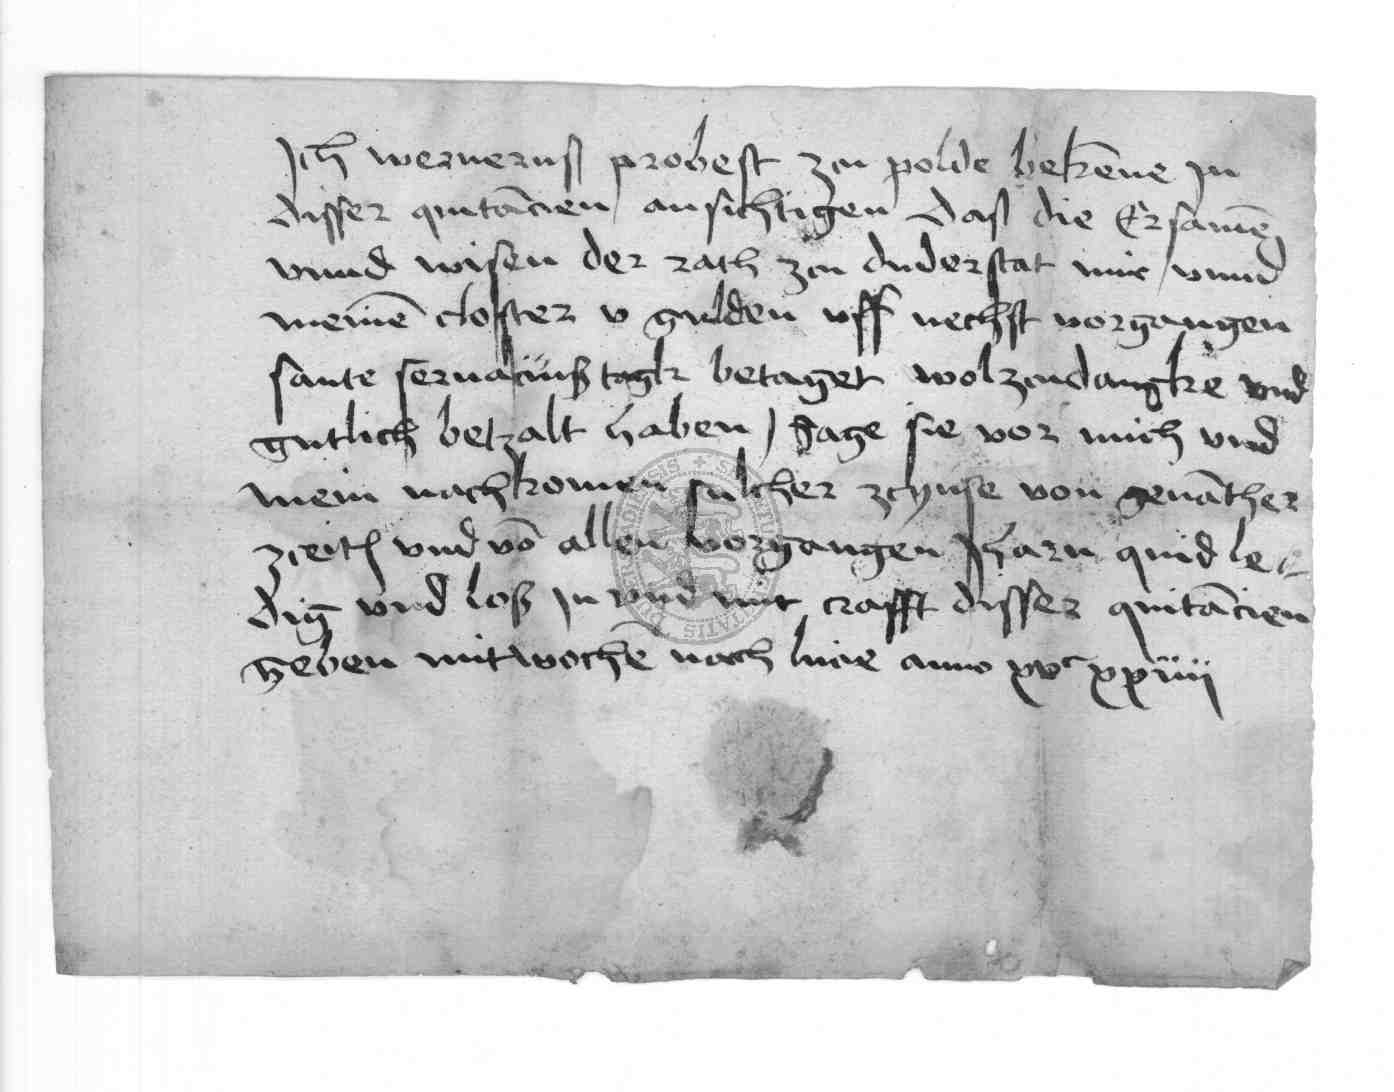 Ich wernerusß probest zcu polde bekēne In
disser quitācien ansichtigen daß die Ersamē
vnnd wisen der rath zcu duderstat mir / vnnd
meinē closter v gulden vff nechst vorgangen
sante seruaciußtagk betaget wolzcudangke vnd
gutlich betzalt haben / Sage sie vor mich vnd
mein nachkomen sulcher zcynse von genāther
zceith vnd vō allen vorgangen Iharn quid le
dig vnd loß In vnd mit crafft disser quitācien
geben mitwochē nach lucie anno xvᶜ xxiiii